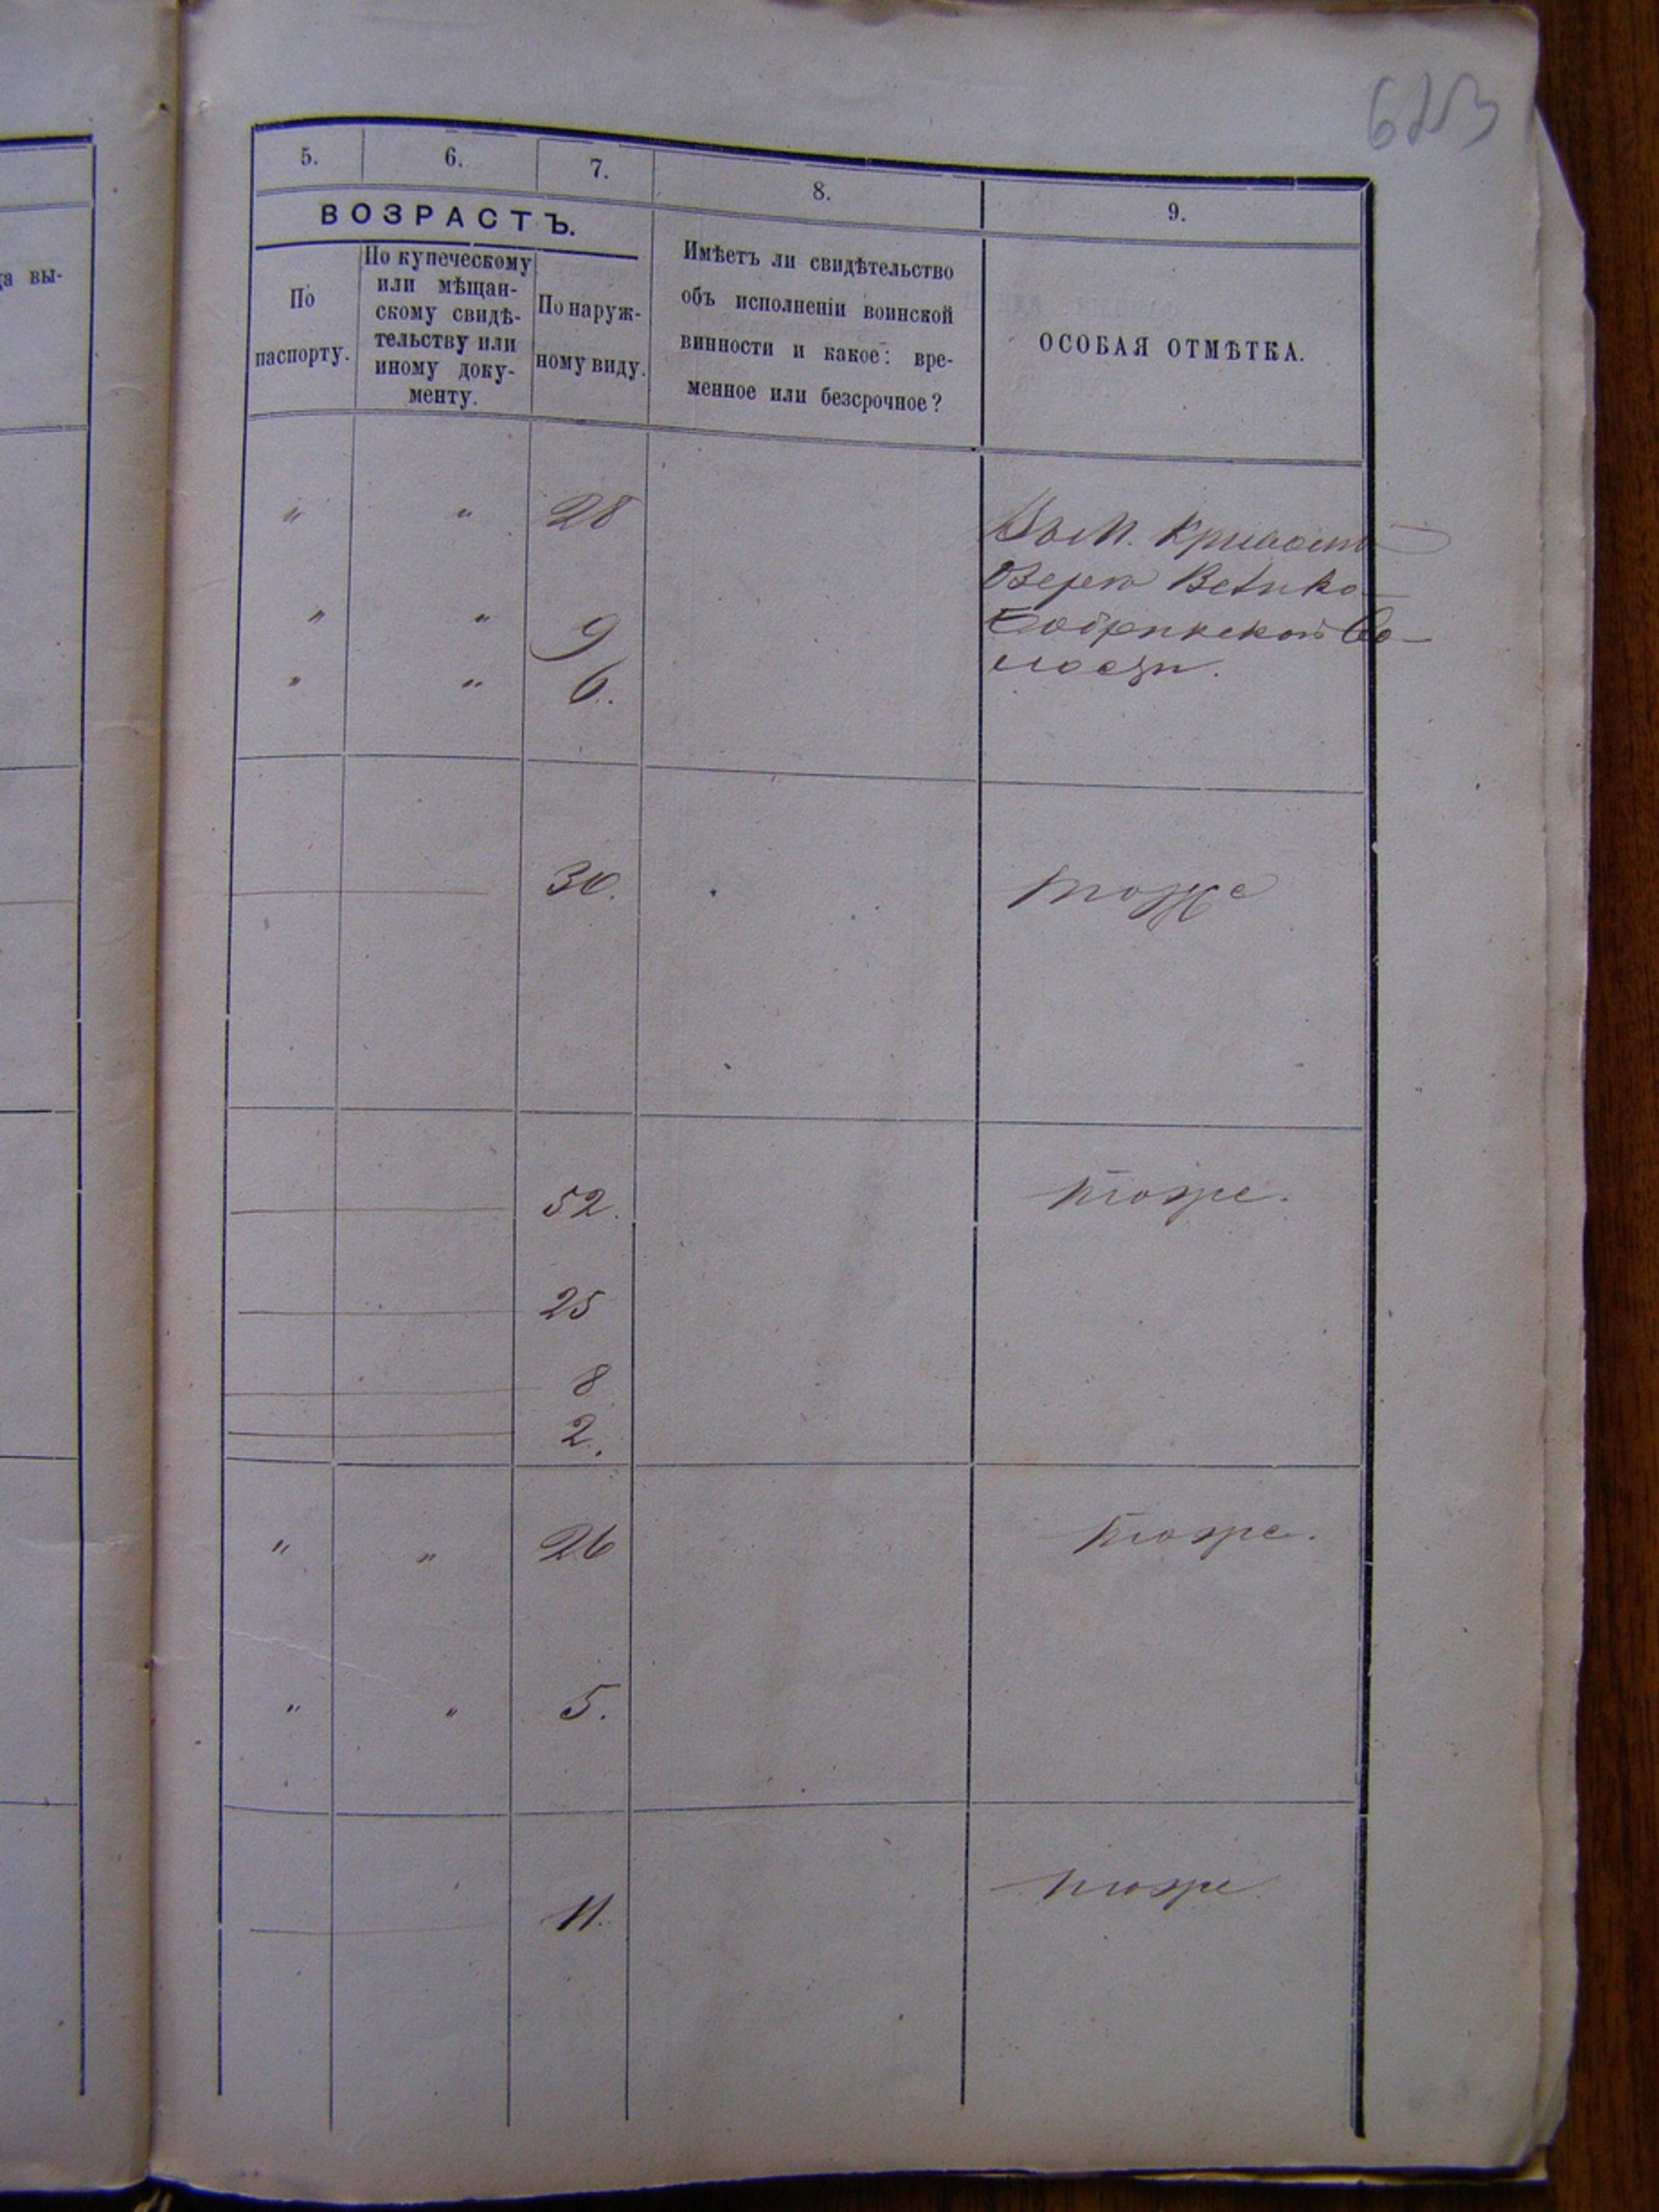 5. 6. 7. 8. 9.
ВОЗРАСТЪ.
По
паспорту.
По купеческому
или мѣщан-
скому свидѣ-
тельству или
иному доку-
менту.
По наруж-
ному виду.
Имѣетъ ли свидѣтельство
объ исполненіи воинской
винности и какое: вре-
менное или безсрочное?
ОСОБАЯ ОТМѢТКА.
да вы-
" " 28
Въ М. Кривомъ
Озерѣ
" " 9
" " 6.
30. тоже
52. тоже.
25
8
2.
" " 26 тоже.
" " 5.
11. тоже